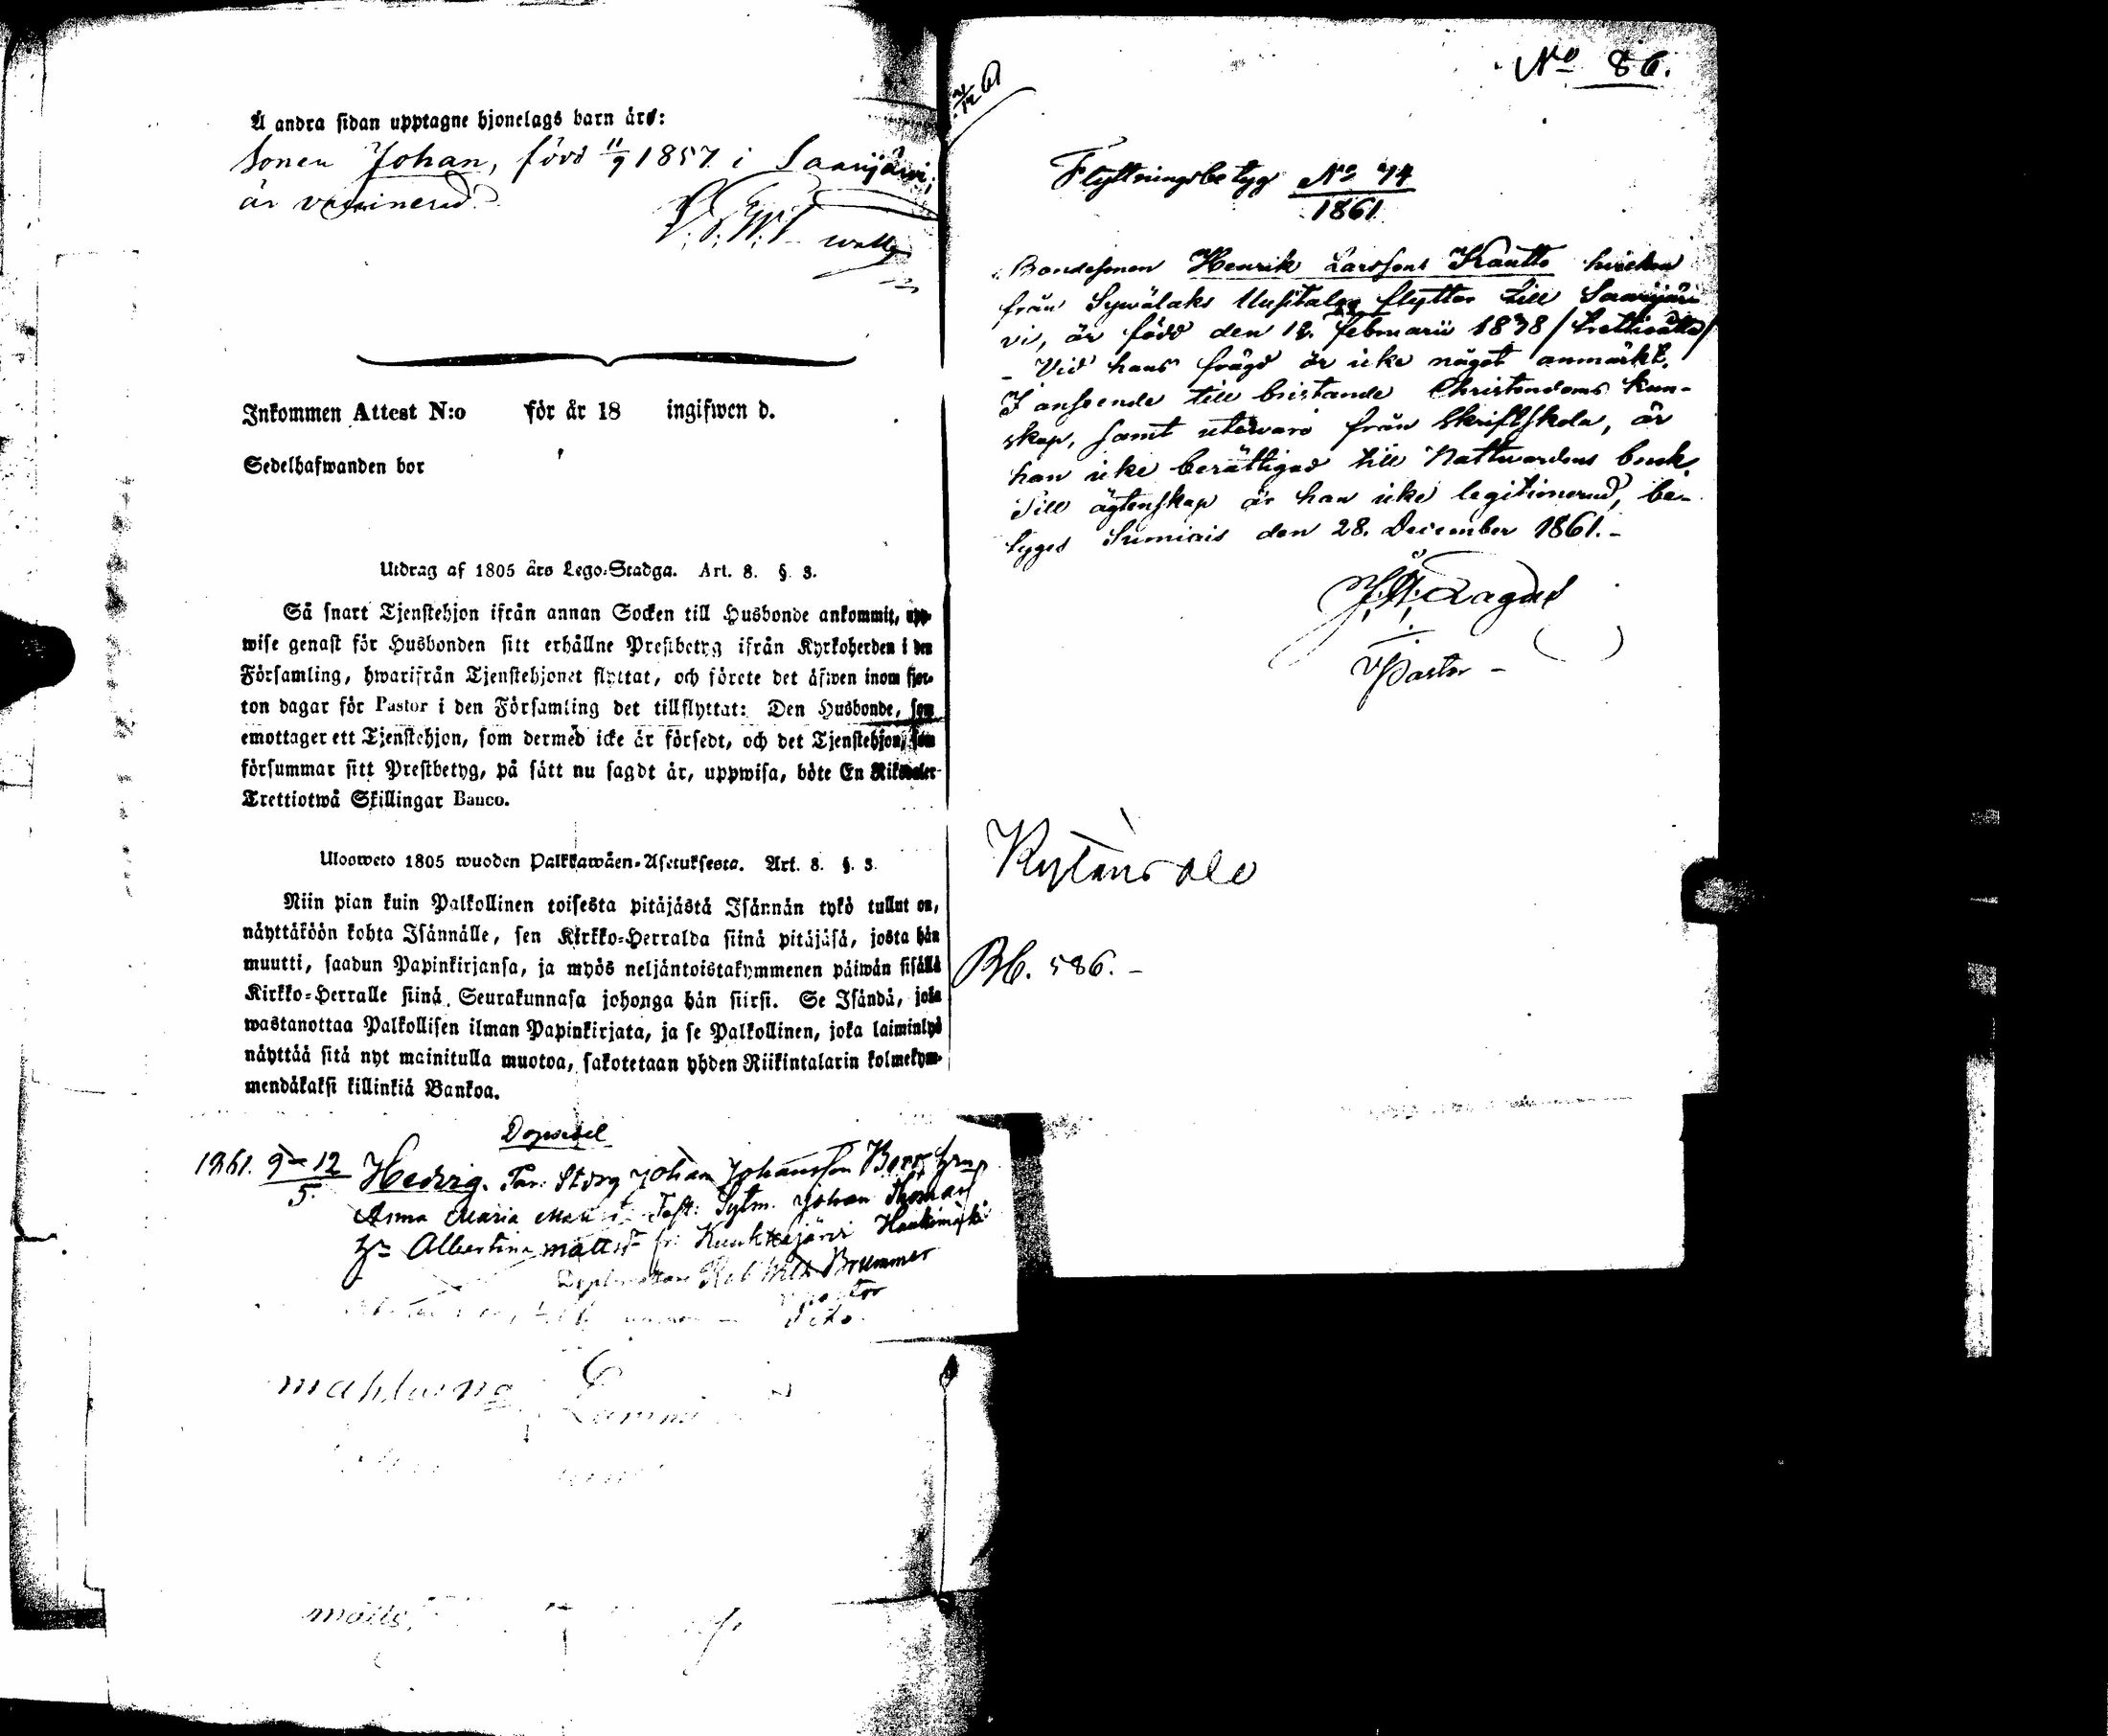 Å andra sidan upptagne hjonelags barn äro:
Sonen Johan, född 11/9 1857 i Saarijärvi,
är vaccinerad.
Inkommen Attest N:o för år 18 ingifwen d.
Sedelhafwanden bor
Utdrag af 1805 års Lego-Stadga. Art. 8. §. 3.
Så snart Tjenstehjon ifrån annan Socken till Husbonde ankommit, upp-
wise genast för Husbonden sitt erhållne Prestbetyg ifrån Kyrkoherden i den
Församling, hwarifrån Tjenstehjonet flyttat, och förete det äfwen inom fjor-
ton dagar för Pastor i den Församling det tillflyttat: Den Husbonde, som
emottager ett Tjenstehjon, som dermed icke är försedt, och det Tjenstehjon, som
försummar sitt Prestbetyg, på sätt nu sagdt är, uppwisa, böte En Riksdaler
Trettiotwå Skillingar Banco.
Ulosweto 1805 wuoden Palkkawäen-Asetuksesta. Art. 8. §. 3.
Niin pian kuin Palkollinen toisesta pitäjästä Isännän tykö tullut on,
näyttäköön kohta Isännälle, sen Kirkko-Herralda siinä pitäjäsä, josta hän
muutti, saadun Papinkirjansa, ja myös neljäntoistakymmenen päiwän sisällä
Kirkko-Herralle siinä Seurakunnasa johonga hän siirsi. Se Isändä, joka
wastanottaa Palkollisen ilman Papinkirjata, ja se Palkollinen, joka laiminlyö
näyttää sitä nyt mainitulla muotoa, sakotetaan yhden Riikintalarin kolmekym-
mendäkaksi killinkiä Bankoa.
Dopsedel
1861. 9 - 12/5. Hedvig. Far: Storp Johan Johansson
Anna Maria Fast: Sytm. Johan Thomas
Albertina Mattsd fr: Haukimäki
Rob Wilh Brummer
Lammi
matts
No 86.
Flyttningsbetyg No 74
1861
Bondesonen Henrik Larsson Kautto hvilken
från Sywälaks Uusitalo flyttar till Saarijär-
vi, är född den 12. februarii 1838 /trettioåtta/
- Vid hans frägd är icke något anmärkt.
I anseende till bristande Christendoms kun-
skap, samt utevaro från Skriftskola, är
han icke berättigad till Nattvardens bruk.
Till ägtenskap är han icke legitimerad, be-
tyges Sumiais den 28. December 1861. -
Lagus
v Pastor -
Bb. 586. -